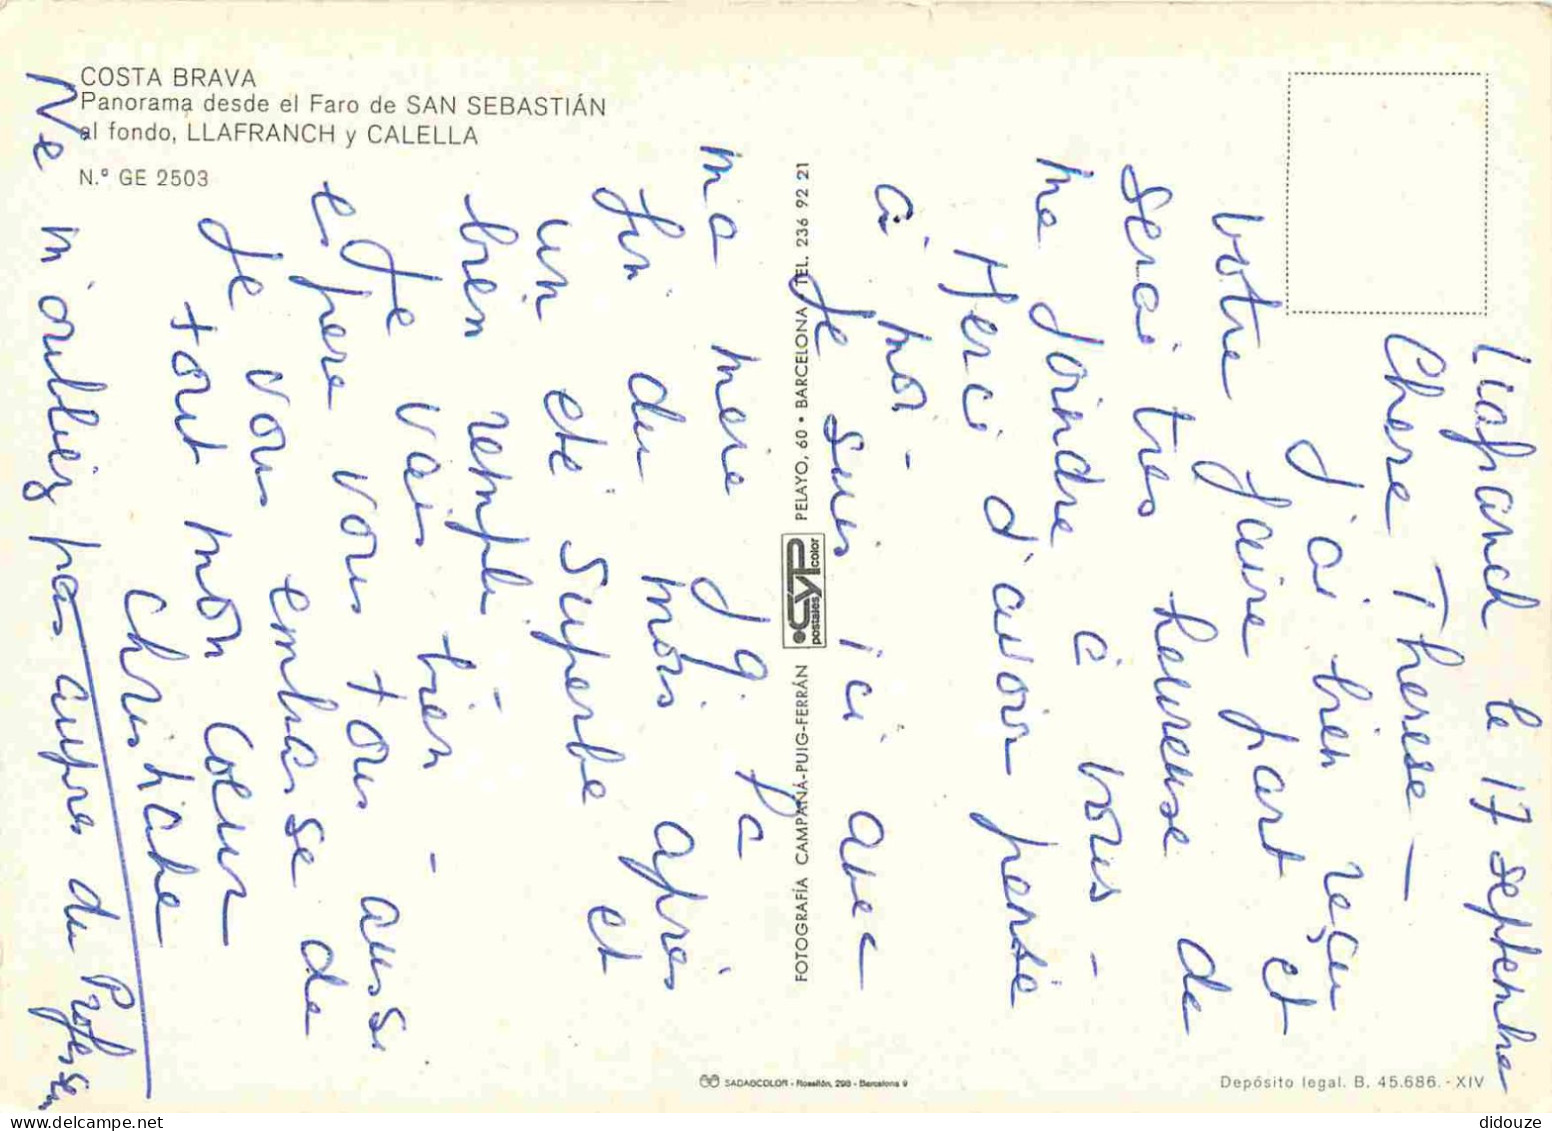 COSTA BRAVA
Panorama desde el Faro de SAN SEBASTIÁN
al fondo, LLAFRANCH y CALELLA
N.º GE 2503
FOTOGRAFÍA CAMPAÑÁ-PUIG-FERRÁN
CYP
postales color
PELAYO, 60 • BARCELONA TEL. 236 92 21
Llafranch le 17 septembre
Chere Therese -
J'ai bien reçu
votre faire part et
serai tres heureuse de
me joindre à vous -
Merci d'avoir pensé
à moi -
Je suis ici avec
ma mere jq. la
fin du mois après
un été superbe et
bien rempli
Je vais bien -
espere vous tous aussi
Je vous embrasse de
tout mon coeur
Christiane
Ne m'oubliez pas aupres du Professeur
SADAGCOLOR - Rosellón, 298 - Barcelona 9
Depósito legal. B. 45.686. - XIV
didouze